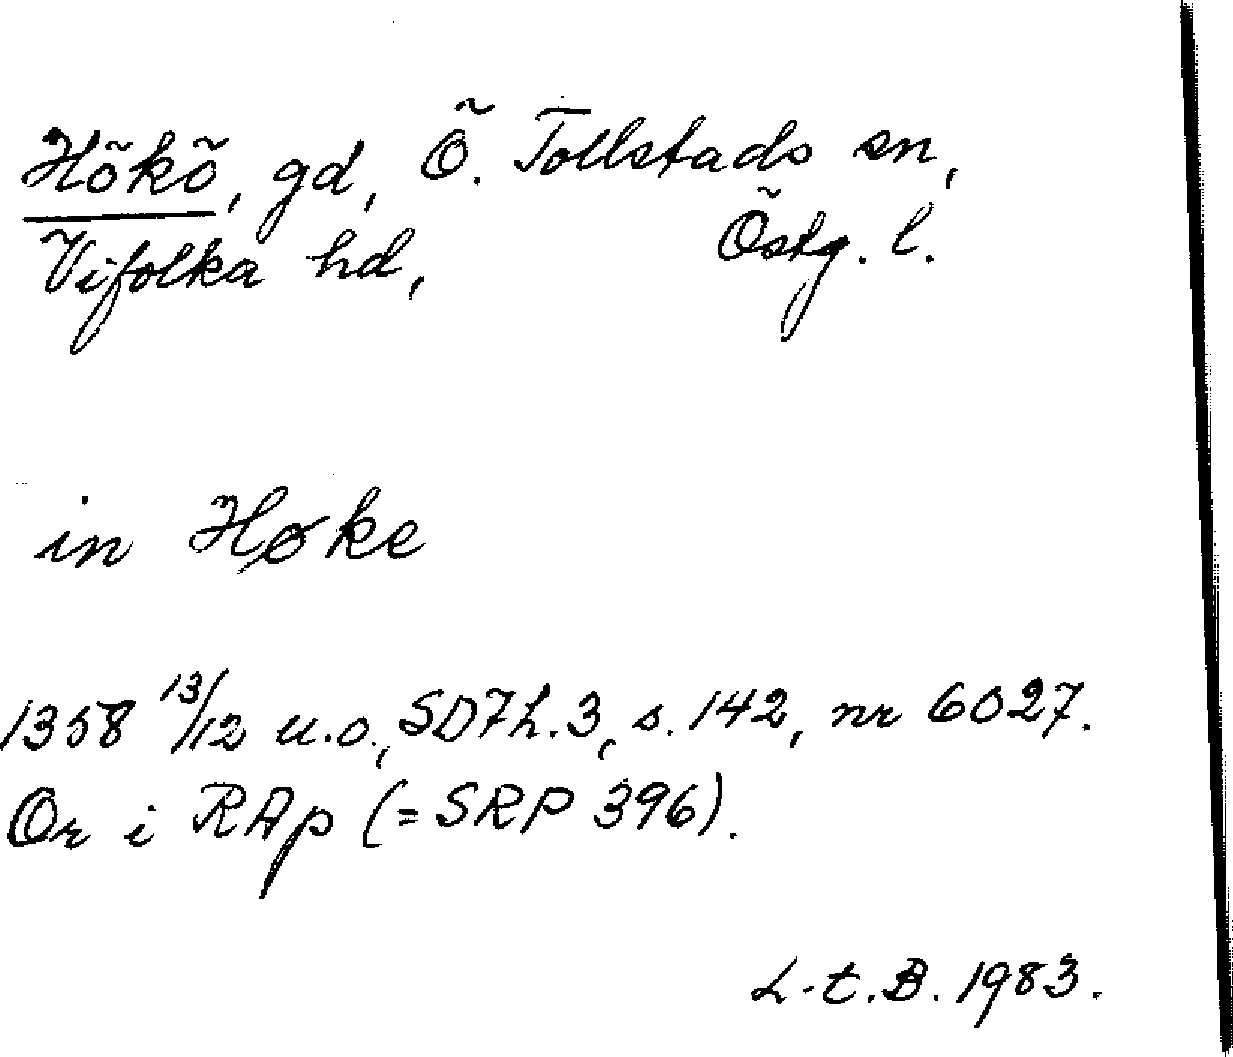 Hökö, gd, Ö. Tollstads sn,
Vifolka hd, Östg. l.
in Høke
1358 13/12 u.o., SD7h.3, s. 142, nr 6027.
Or i RAp (= SRP 396).
L-t.B. 1983.